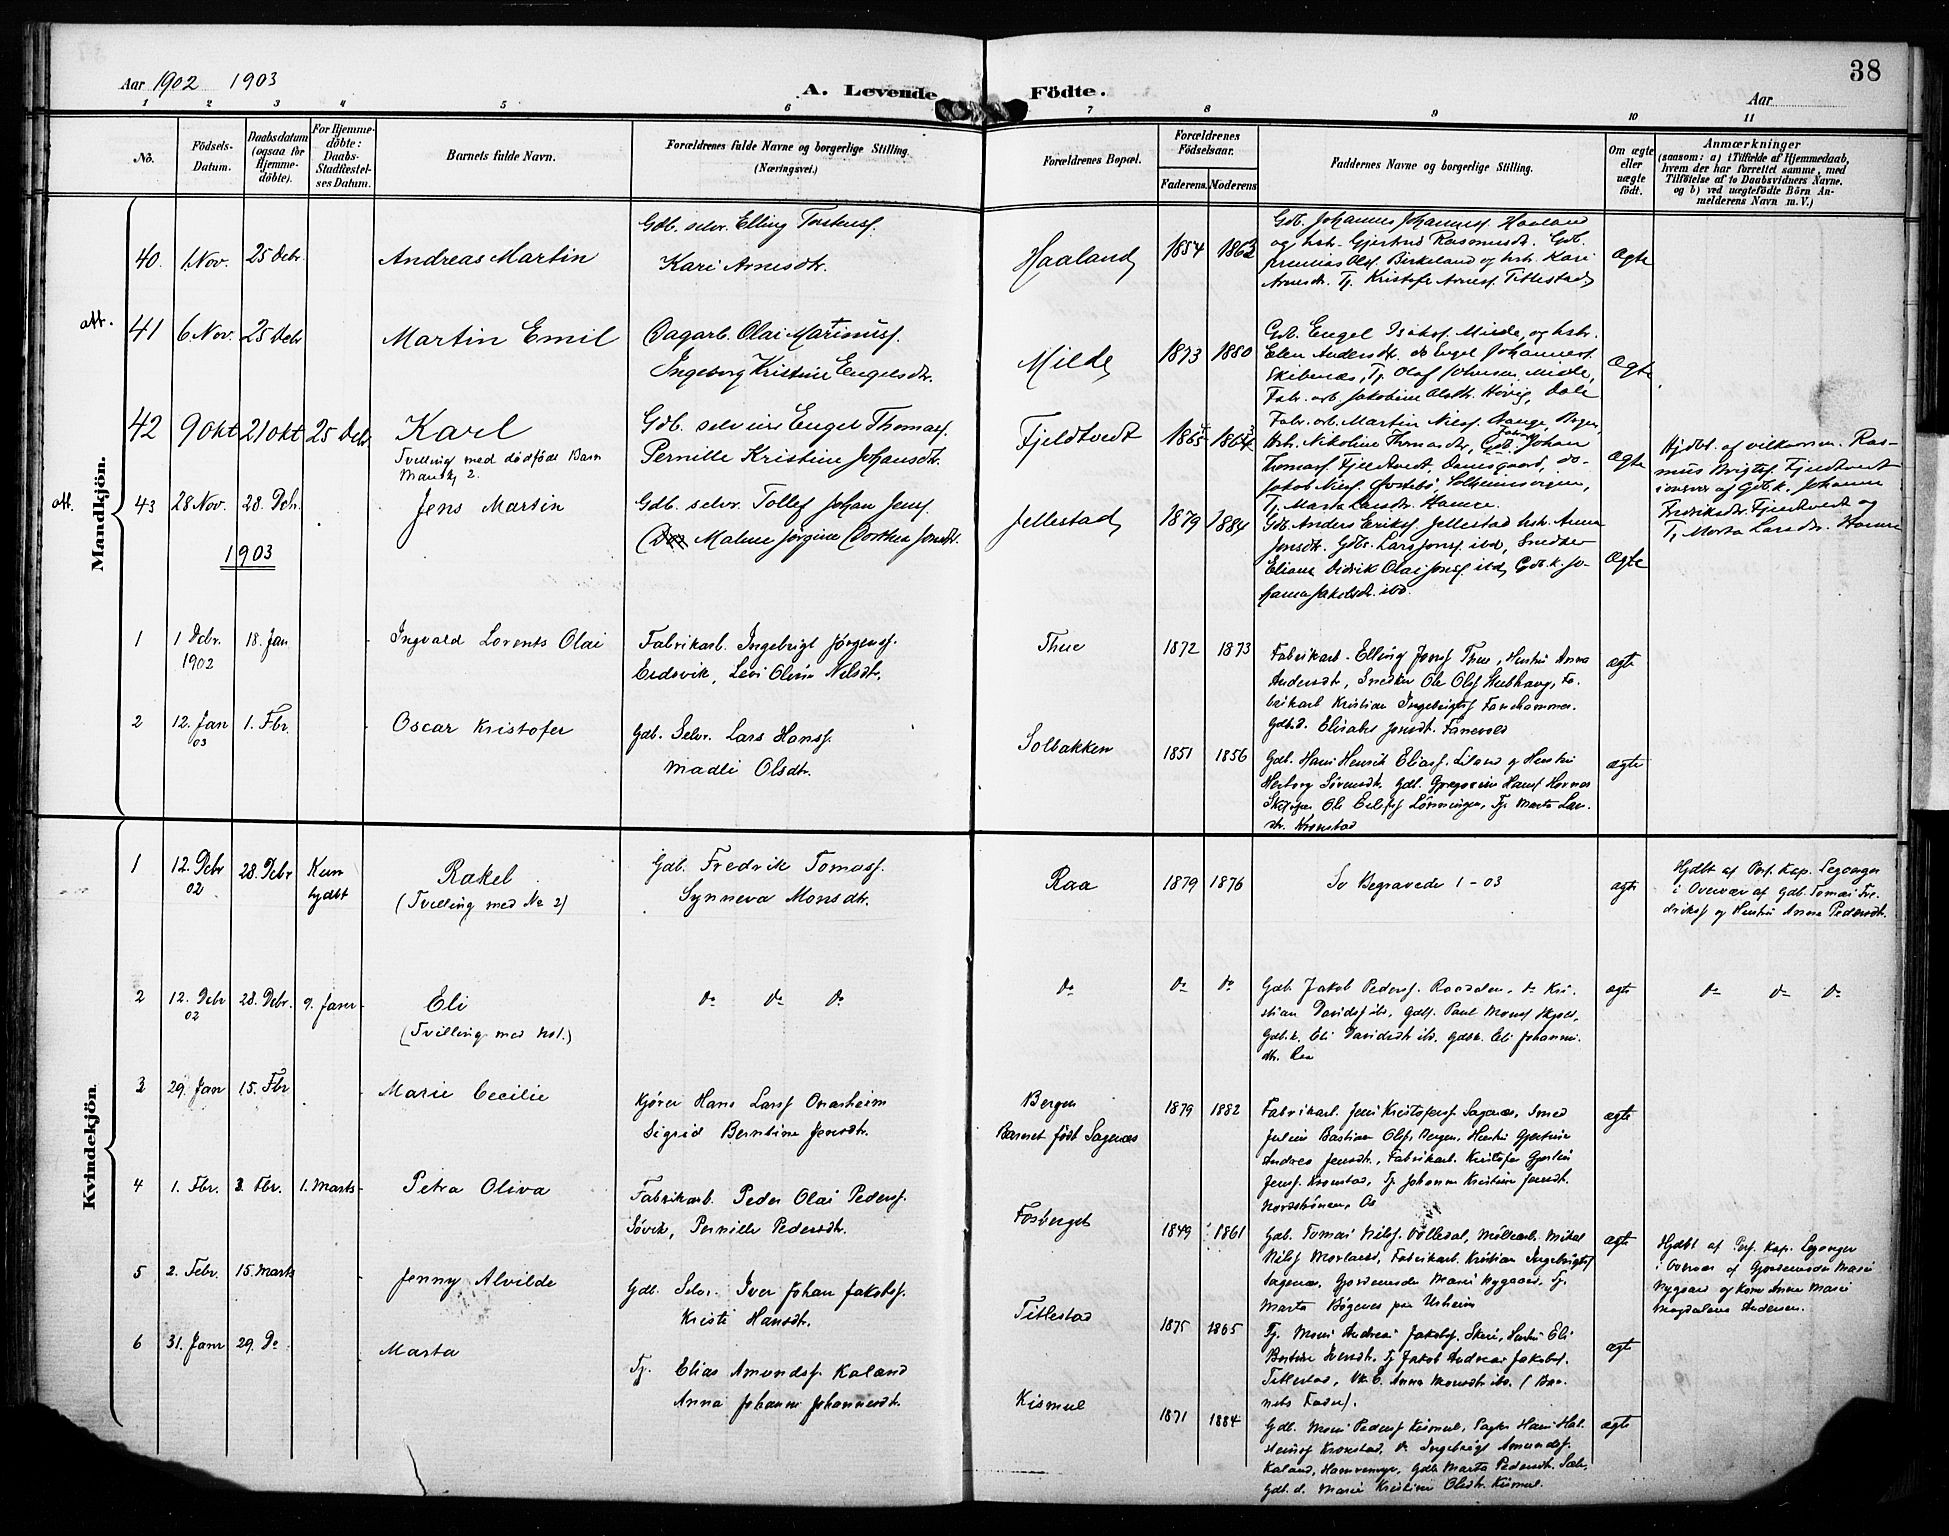 38
Aar 1902 1903
A. Levende Födte.
Aar
1 2 3 4 5 6 7 8 9 10 11
No.
Födsels-
Datum.
Daabsdatum
(ogsaa for
Hjemme-
döbte).
For Hjemme-
döbte:
Daabs-
Stadfæstel-
ses Datum.
Barnets fulde Navn.
Forældrenes fulde Navne og borgerlige Stilling
(Næringsvei.)
Forældrenes Bopæl.
Forældrenes
Födselsaar.
Faderens. Moderens
Faddernes Navne og borgerlige Stilling.
Om ægte
eller
uægte
födt.
Anmærkninger
(saasom: a) i Tilfælde af Hjemmedaab,
hvem der har forrettet samme, med
Tilföielse af to Daabsvidners Navne.
og b) ved uægtefödte Börn An-
melderens Navn m. V.)
Mandkjön.
40. 1. Nov. 25 Debr Andreas Martin
Gdb. selv. Elling Torkelsf.
Kari Arnesdtr.
Haaland 1854 1863
Gdb. Johannes Johannesf. Haaland
og hstr. Gjertrud Rasmusdt. Gdb.
Olsf. Birkeland og hstr. Kari
Arnesdtr. Tj. Kristofer Arnesf. Titlestad
ægte
att. 41 6 Nov. 25 Debr Martin Emil
Dagarb. Olai Martinusf.
Ingeborg Kristine Engelsdtr.
Milde 1873 1880
Gdb. Engel Milde, og hstr.
Elen Andersdtr. do Engel Johannesf.
Skibenæs, Tj. Olaf Johnsen Milde,
Fabr. arb. Jakobine Olsdtr. Høvig, Dale
ægte
42 9 Okt 21 Okt 25 Debr Karl
Tvilling med dödfödt Barn
Mandkj 2.
Gdb. selveier Engel Thomasf.
Pernille Kristine Johansdtr.
Fjeldtvedt 1865 1864
Fabr. arb. Martin Nielsf. Bergen,
Hstr. Nikoline Thomasdtr, Gdb. Johan
Thomasf. Fjeldtvedt, Damsgaard, do-
Jakob Nielsf. Solheimsvigen,
Tj. Marta Larsdtr. Hamre
ægte
Hjdbt. af Ras-
mus Fjeldtvedt
i overvær af Gdb.k. Johanne
Fredriksdtr. Fjeldtvedt og
Tj. Marta Larsdtr. Hamre
att. 43 28 Nov. 28. Dcb. Jens Martin
Gdb. selv. Tollef Johan Jensf.
Malene Jørgine Dorthea Jonsdtr.
Jellestad 1879 1884
Gdb. Anders Eriksf. Jellestad hstr. Anna
Jonsdtr. Gdbs. Lars Jonsf. ibd, Snedker
Didrik Olai Jonsf. ibd, Gdb.k. Jo-
hanna Jakobsdt. ibd.
ægte
1903
1 1 Dcbr. 1902 18. Jan Ingvald Lorents Olai
Fabrikarb. Ingebrigt Jørgensf.
Eidsvik, Olina Nilsdtr.
Thue 1872 1873
Fabrikarb. Elling Jonsf Thue, Hustru Anna
Andersdtr, Snedker Ole Olsf Fa-
brikarb. Kristian Ingebrigtsf Fanehammer.
Gdb.d. Elisabet Jonsdt. Fanevold
ægte
2 12. Jan 03 1. Fbr. Oscar Kristofer
Gdb. Selv. Lars Hansf.
Madli Olsdtr.
Solbakken 1851 1856
Gdb. Hans Henrik Eliasf. Liland og Hustru
Herborg Sörensdtr. Gdb. Gregorius Hansf
Skipper Ole Lönningen, Tj. Marta Lars-
dtr. Kronstad
ægte
Kvindekjön
1 12. Dcbr 02 28. Dcbr Kun
hjdbt
Rakel
(Tvilling med No 2)
Gdb. Fredrik Tomasf.
Synneva Monsdtr.
Raa 1879 1876
Se Begravede 1-03
ægte
Hjdbt af Pers. Kap. Leganger
i Overvær af Gdb. Tomas Fre-
driksf og Hustru Anna Pedersdtr.
2 12. Dcbr 02 28. Dcbr. 9. Januar Eli
(Tvilling med No 1.)
do do do
do
do do
Gdb. Jakob Pedersf. Raadalen, do Kri-
stian Davidsf ibd, Gdbf. Paul Monsf
Gdb.k. Eli Davidsdt ibd, Gdb.k. Eli Johannes-
dtr. Raa
ægte
do do do
3 29. Jan 15. Fbr Marie Cecilie
Kjører Hans Larsf Onarheim
Sigrid Berntine Jensdtr.
Bergen
Barnet födt Sagenæs
1879 1882
Fabrikarb. Jens Kristofersf Sagenæs, Smed
Julius Bastian Olsf. Bergen, Hustru Gjertine
Andrea Jensdtr., Fabrikarb. Kristofer
Jensf. Kronstad, Tj. Johanna Kristine Jensdt.
Nordströnen, Os
ægte
4 1. Fbr. 3. Fbr. 1. Marts Petra Oliva
Fabrikarb. Peder Olai Pedersf.
Søvik, Pernille Pedersdtr.
Fosberget 1849 1861
Gdb. Tomas Nilsf. Mikal
Nilsf Fabrikarb. Kristian Ingebrigtsf
Sagenæs, Gjordemoder Marie Nygaard, Tj.
Marta Bøgenes paa
ægte
Hjdbt af Pers. Kap. Leganger
i Overvær af Gjordemoder Marie
Nygaard og Kone Anne Marie
Magdalene Andersen.
5 2. Febr. 15. Marts Jenny Alvilde
Gdb. Selv. Iver Johan Jakobsf.
Kristi Hansdtr.
Titlestad 1875 1865
Tj. Mons Andreas Jakobsf. Hustru Eli
Bertine Iversdt. Tj. Jakob Andreas Jakobsf.
Titlestad, Anna Monsdt ibd. (Bar-
nets Fader).
ægte
6 31. Janr 29. Do Marta
Tj. Elias Amundsf. Kaland
Anna Johanne Johannesdtr.
Kismul 1871 1884
Gdb. Mons Pedersf Kismul, Hans
Kronstad, do Ingebrigt Amundsf.
Kaland, Gdb. Marta Pedersdt.
Gdb.d. Marie Kristine Olsdtr. Kismul.
ægte